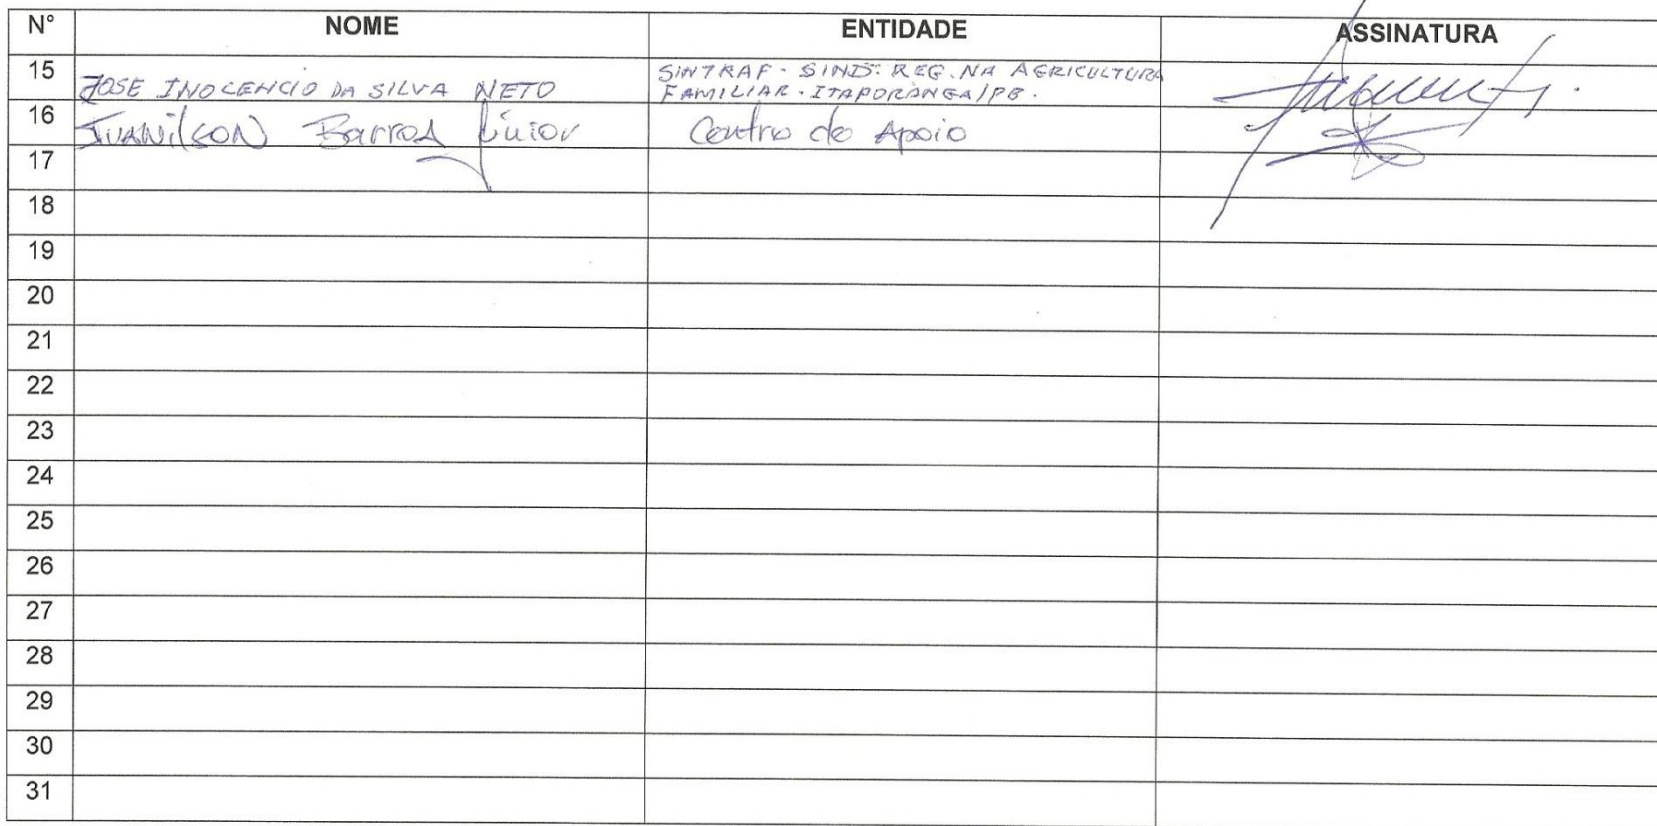 N° NOME ENTIDADE ASSINATURA
15 JOSE INOCENCIO DA SILVA NETO SINTRAF - SIND. REG. NA AGRICULTURA
FAMILIAR. ITAPORANGA/PB.
16 JUANilSON Barros Júnior Centro de Apoio
17
18
19
20
21
22
23
24
25
26
27
28
29
30
31